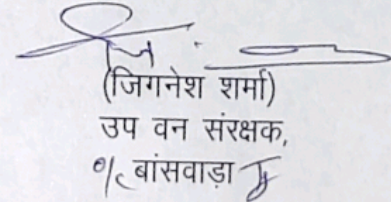 (जिगनेश शर्मा)
उप वन संरक्षक,
बांसवाड़ा